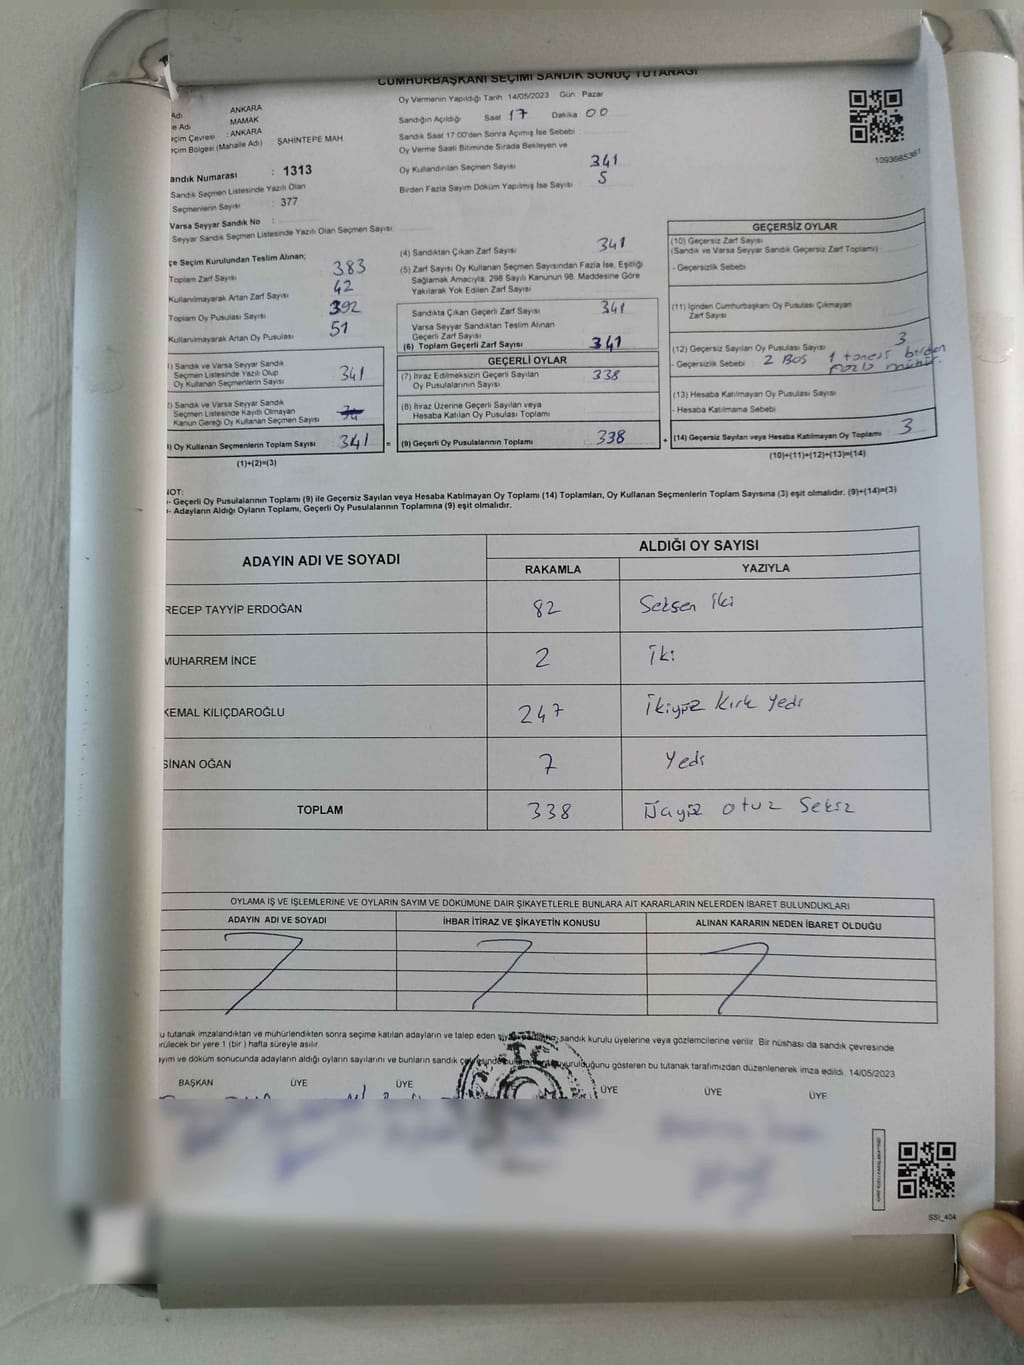 CUMHURBAŞKANI SEÇİMİ SANDIK SONUÇ TUTANAĞI
Adı ANKARA
e Adı MAMAK
eçim Çevresi : ANKARA
eçim Bölgesi (Mahalle Adı) : ŞAHİNTEPE MAH
andık Numarası : 1313
Sandık Seçmen Listesinde Yazılı Olan
Seçmenlerin Sayısı : 377
Varsa Seyyar Sandık No :
Seyyar Sandık Seçmen Listesinde Yazılı Olan Seçmen Sayısı
Oy Vermenin Yapıldığı Tarih 14/05/2023 Gün : Pazar
Sandığın Açıldığı Saat 17 Dakika 00
Sandık Saat 17.00'den Sonra Açılmış İse Sebebi
Oy Verme Saati Bitiminde Sırada Bekleyen ve
Oy Kullandırılan Seçmen Sayısı 341
Birden Fazla Sayım Döküm Yapılmış İse Sayısı 5
1093685361
çe Seçim Kurulundan Teslim Alınan;
Toplam Zarf Sayısı 383
Kullanılmayarak Artan Zarf Sayısı 42
Toplam Oy Pusulası Sayısı 392
Kullanılmayarak Artan Oy Pusulası 51
) Sandık ve Varsa Seyyar Sandık
Seçmen Listesinde Yazılı Olup
Oy Kullanan Seçmenlerin Sayısı 341
) Sandık ve Varsa Seyyar Sandık
Seçmen Listesinde Kayıtlı Olmayan
Kanun Gereği Oy Kullanan Seçmen Sayısı
) Oy Kullanan Seçmenlerin Toplam Sayısı 341 =
(1)+(2)=(3)
(4) Sandıktan Çıkan Zarf Sayısı 341
(5) Zarf Sayısı Oy Kullanan Seçmen Sayısından Fazla İse, Eşitliği
Sağlamak Amacıyla; 298 Sayılı Kanunun 98. Maddesine Göre
Yakılarak Yok Edilen Zarf Sayısı
Sandıkta Çıkan Geçerli Zarf Sayısı 341
Varsa Seyyar Sandıktan Teslim Alınan
Geçerli Zarf Sayısı
(6) Toplam Geçerli Zarf Sayısı 341
GEÇERLİ OYLAR
(7) İtiraz Edilmeksizin Geçerli Sayılan
Oy Pusulalarının Sayısı 338
(8) İtiraz Üzerine Geçerli Sayılan veya
Hesaba Katılan Oy Pusulası Toplamı
(9) Geçerli Oy Pusulalarının Toplamı : 338 +
GEÇERSİZ OYLAR
(10) Geçersiz Zarf Sayısı
(Sandık ve Varsa Seyyar Sandık Geçersiz Zarf Toplamı)
- Geçersizlik Sebebi
(11) İçinden Cumhurbaşkanı Oy Pusulası Çıkmayan
Zarf Sayısı
(12) Geçersiz Sayılan Oy Pusulası Sayısı 3
- Geçersizlik Sebebi : 2 BOŞ 1 tanesi birden
fazla mühür.
(13) Hesaba Katılmayan Oy Pusulası Sayısı
- Hesaba Katılmama Sebebi
(14) Geçersiz Sayılan veya Hesaba Katılmayan Oy Toplamı 3
(10)+(11)+(12)+(13)=(14)
NOT:
- Geçerli Oy Pusulalarının Toplamı (9) ile Geçersiz Sayılan veya Hesaba Katılmayan Oy Toplamı (14) Toplamları, Oy Kullanan Seçmenlerin Toplam Sayısına (3) eşit olmalıdır. (9)+(14)=(3)
- Adayların Aldığı Oyların Toplamı, Geçerli Oy Pusulalarının Toplamına (9) eşit olmalıdır.
ADAYIN ADI VE SOYADI ALDIĞI OY SAYISI
RAKAMLA YAZIYLA
RECEP TAYYİP ERDOĞAN 82 Seksen iki
MUHARREM İNCE 2 İki
KEMAL KILIÇDAROĞLU 247 İkiyüz Kırk Yedi
SİNAN OĞAN 7 Yedi
TOPLAM 338 Üçyüz otuz Seksz
OYLAMA İŞ VE İŞLEMLERİNE VE OYLARIN SAYIM VE DÖKÜMÜNE DAİR ŞİKAYETLERLE BUNLARA AİT KARARLARIN NELERDEN İBARET BULUNDUKLARI
ADAYIN ADI VE SOYADI İHBAR İTİRAZ VE ŞİKAYETİN KONUSU ALINAN KARARIN NEDEN İBARET OLDUĞU
u tutanak imzalandıktan ve mühürlendikten sonra seçime katılan adayların ve talep eden sandık kurulu üyelerine veya gözlemcilerine verilir. Bir nüshası da sandık çevresinde
rülecek bir yere 1 (bir ) hafta süreyle asılır.
ayım ve döküm sonucunda adayların aldığı oyların sayılarını ve bunların sandık gösteren bu tutanak tarafımızdan düzenlenerek imza edildi. 14/05/2023
BAŞKAN ÜYE ÜYE ÜYE ÜYE ÜYE
SSI_404